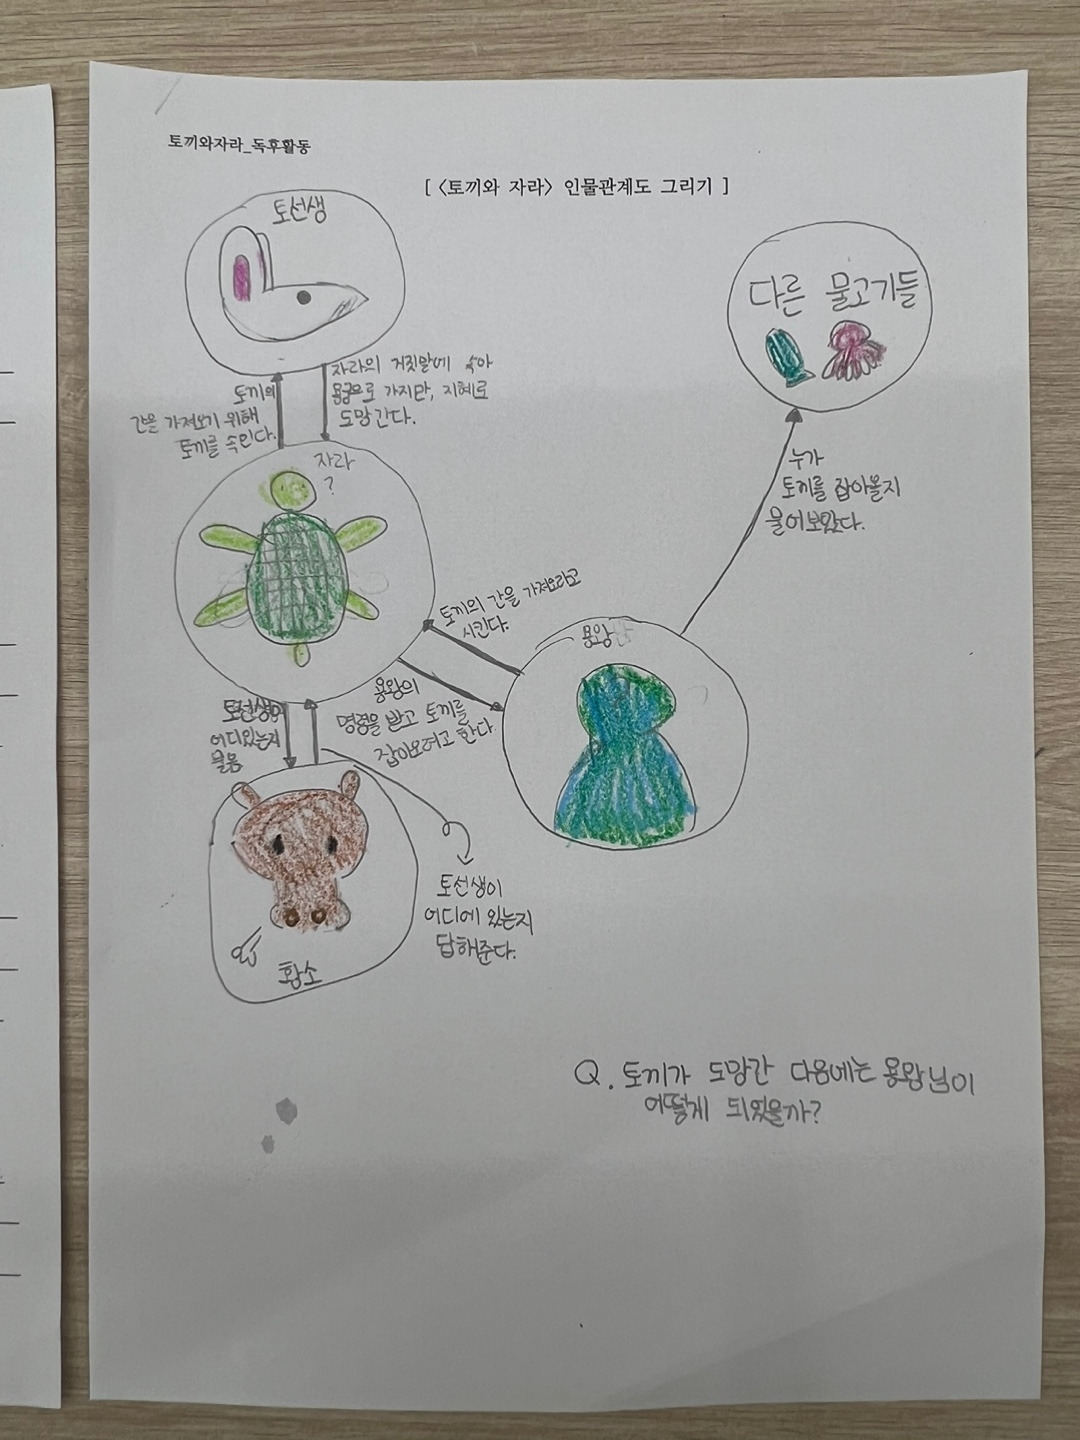 토끼와자라_독후활동
[ <토끼와 자라> 인물관계도 그리기 ]
토선생
다른 물고기들
자라의 거짓말에 속아
용궁으로 가지만, 지혜로
도망간다.
토끼의
간을 가져오기 위해
토끼를 속인다.
자라
?
누가
토끼를 잡아올지
물어보았다.
토끼의 간을 가져오라고
시킨다.
용왕
용왕의
명령을 받고 토끼를
잡아오려고 한다.
토선생이
어디있는지
물음
토선생이
어디에 있는지
답해준다.
황소
Q. 토끼가 도망간 다음에는 용왕님이
어떻게 되었을까?